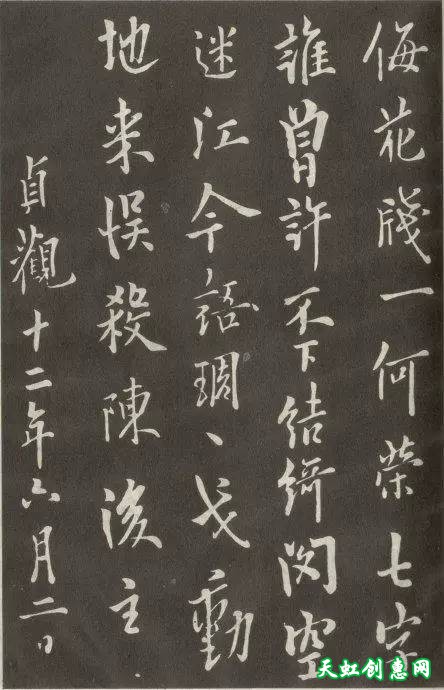 侮花牋一何榮七字
誰曾許不下結綺閣空
迷江令語琱戈動
地来悞殺陳後主
貞觀十二年六月二日
天虹创惠网